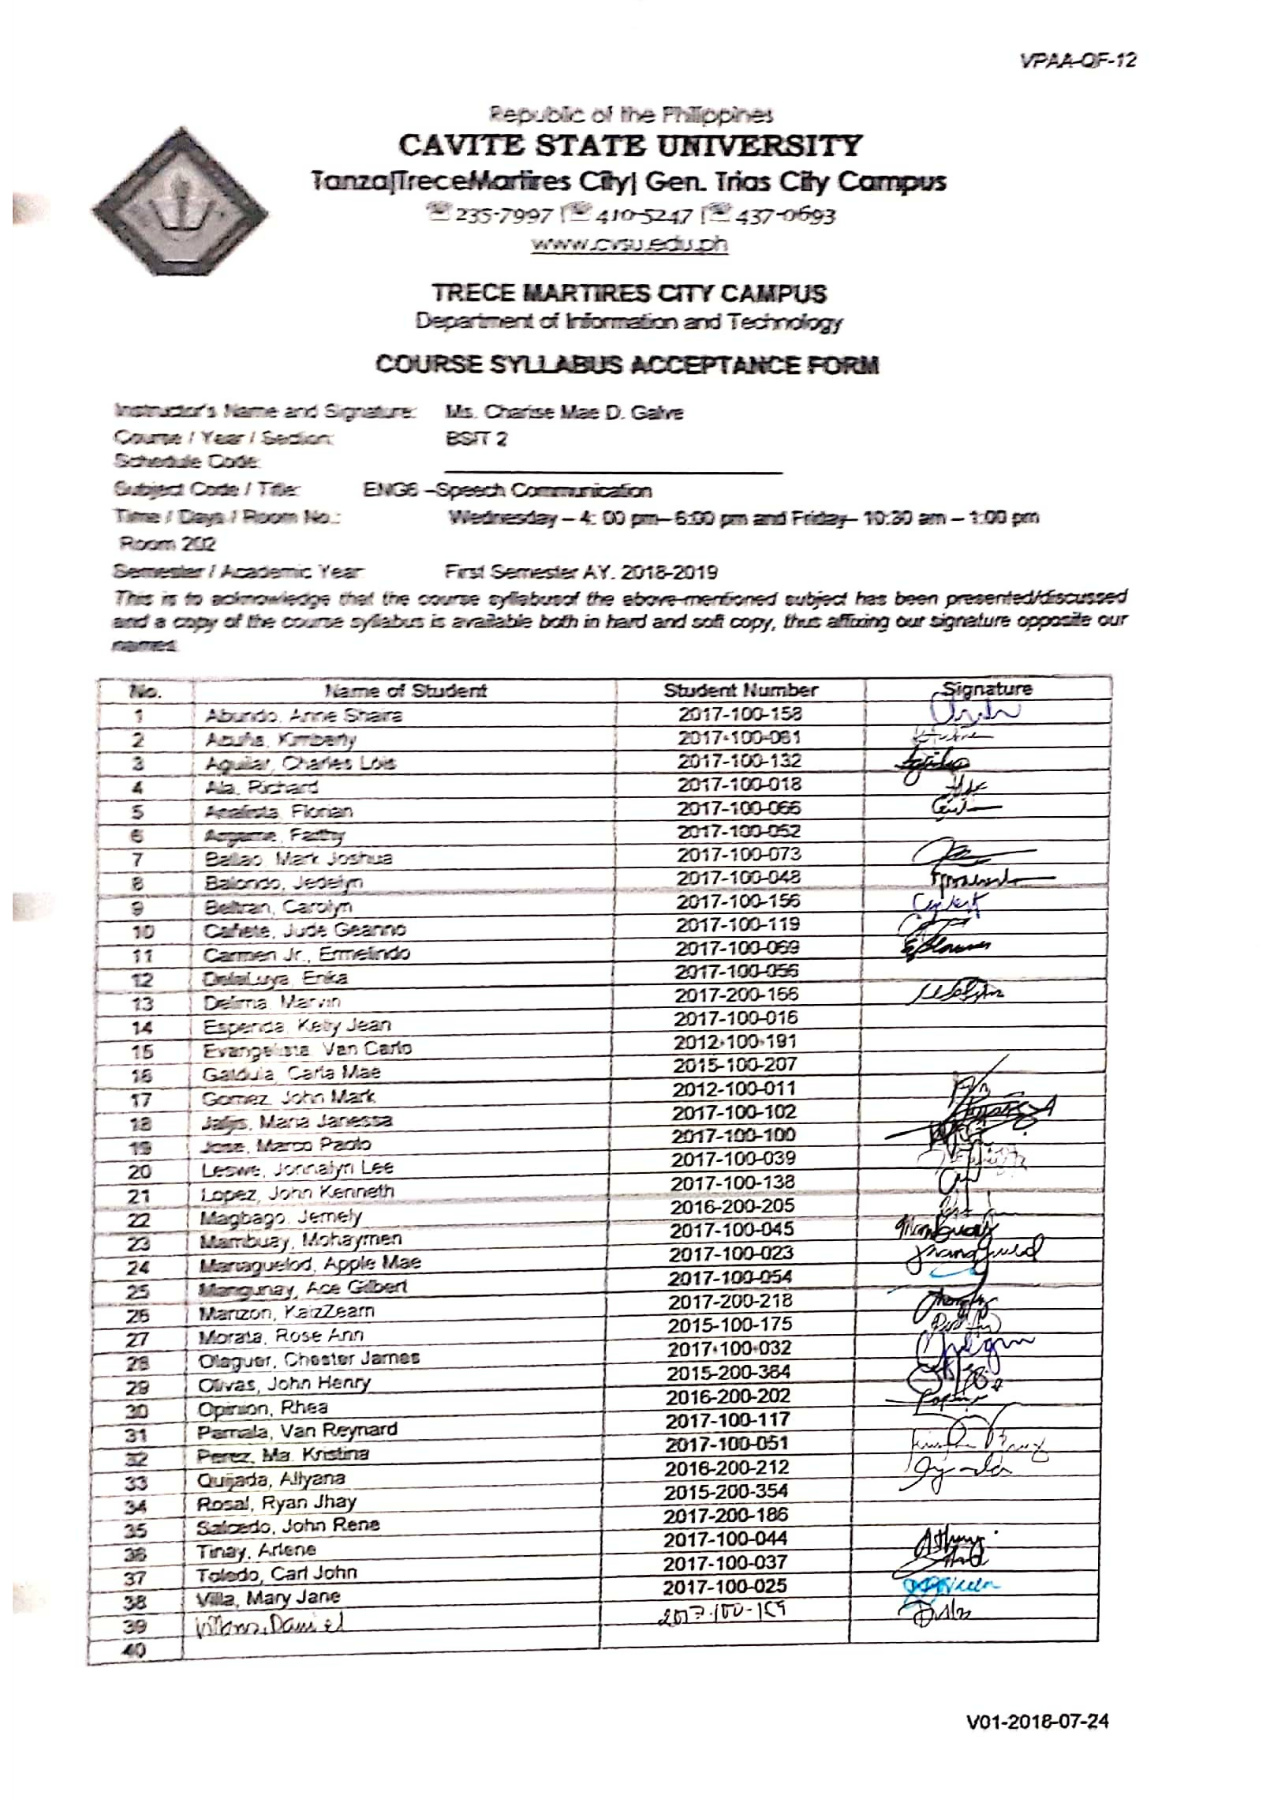 VPAA-QF-12
Republic of the Philippines
CAVITE STATE UNIVERSITY
Tanza|TreceMartires City| Gen. Trias City Campus
☏ 235-7997 |☏ 410-5247 |☏ 437-0693
www.cvsu.edu.ph
TRECE MARTIRES CITY CAMPUS
Department of Information and Technology
COURSE SYLLABUS ACCEPTANCE FORM
Instructor's Name and Signature: Ms. Charise Mae D. Galve
Course / Year / Section: BSIT 2
Schedule Code:
Subject Code / Title: ENG6 –Speech Communication
Time / Days / Room No.: Wednesday – 4: 00 pm– 6:00 pm and Friday– 10:30 am – 1:00 pm
Room 202
Semester / Academic Year: First Semester AY. 2018-2019
This is to acknowledge that the course syllabusof the above-mentioned subject has been presented/discussed
and a copy of the course syllabus is available both in hard and soft copy, thus affixing our signature opposite our
names.
No. Name of Student Student Number Signature
1 Abundo, Anne Shaira 2017-100-158
2 Acuña, Kimberly 2017-100-081
3 Aguilar, Charles Lois 2017-100-132
4 Ala, Richard 2017-100-018
5 Analista, Florian 2017-100-066
6 Argame, Faithy 2017-100-052
7 Ballao, Mark Joshua 2017-100-073
8 Balondo, Jedelyn 2017-100-048
9 Beltran, Carolyn 2017-100-156
10 Cañete, Jude Geanno 2017-100-119
11 Carmen Jr., Ermelindo 2017-100-069
12 DelaLuya, Erika 2017-100-056
13 Delima, Marvin 2017-200-156
14 Esperida, Kelly Jean 2017-100-016
15 Evangelista, Van Carlo 2012-100-191
16 Galdula, Carla Mae 2015-100-207
17 Gomez, John Mark 2012-100-011
18 Jalijis, Maria Janessa 2017-100-102
19 Jose, Marco Paolo 2017-100-100
20 Leswe, Jonnalyn Lee 2017-100-039
21 Lopez, John Kenneth 2017-100-138
22 Magbago, Jemely 2016-200-205
23 Mambuay, Mohaymen 2017-100-045 Mambuay
24 Managuelod, Apple Mae 2017-100-023
25 Mangunay, Ace Gilbert 2017-100-054
26 Manzon, KaizZearn 2017-200-218
27 Morata, Rose Ann 2015-100-175
28 Olaguer, Chester James 2017-100-032
29 Olivas, John Henry 2015-200-384
30 Opinion, Rhea 2016-200-202
31 Pamala, Van Reynard 2017-100-117
32 Perez, Ma. Kristina 2017-100-051
33 Quijada, Allyana 2016-200-212
34 Rosal, Ryan Jhay 2015-200-354
35 Salcedo, John Rene 2017-200-186
36 Tinay, Arlene 2017-100-044
37 Toledo, Carl John 2017-100-037
38 Villa, Mary Jane 2017-100-025
39 Daniel 2017-100-159
40
V01-2018-07-24